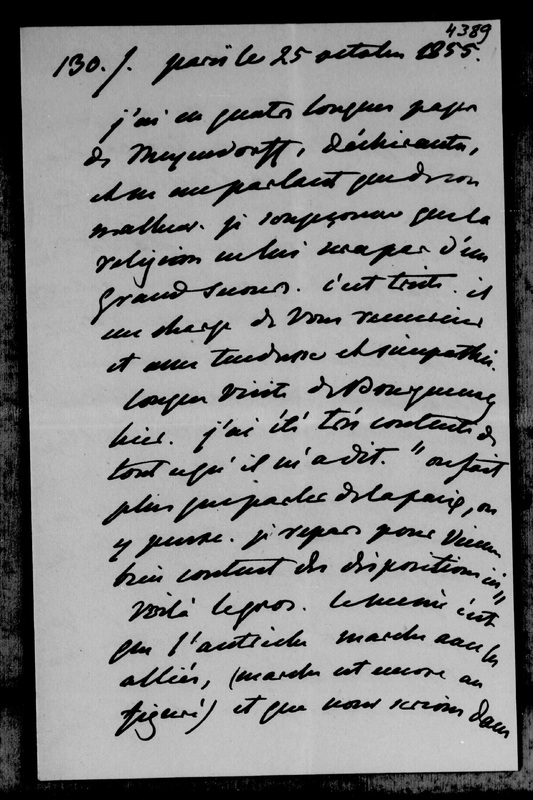 4389
130. /. paris le 25 octobre 1855.
j'ai eu quatre longues pages
de Meyendorff, déchirantes,
et ne me parlant que de son
malheur. je soupçonne que la
religion ne lui sera pas d'un
grand secours. c'est triste. il
me charge de vous remercier
et avec tendresse et sympathie.
longue visite de Bourqueney
hier. j'ai été très contente de
tout ce qu'il m'a dit. "on fait
plus que parler de la paix, on
y pense. je repars pour Vienne
bien content des dispositions ici"
voilà le gros. le menu c'est
que l'autriche marche avec les
alliés, (marche est encore au
figuré) et que nous serions dans